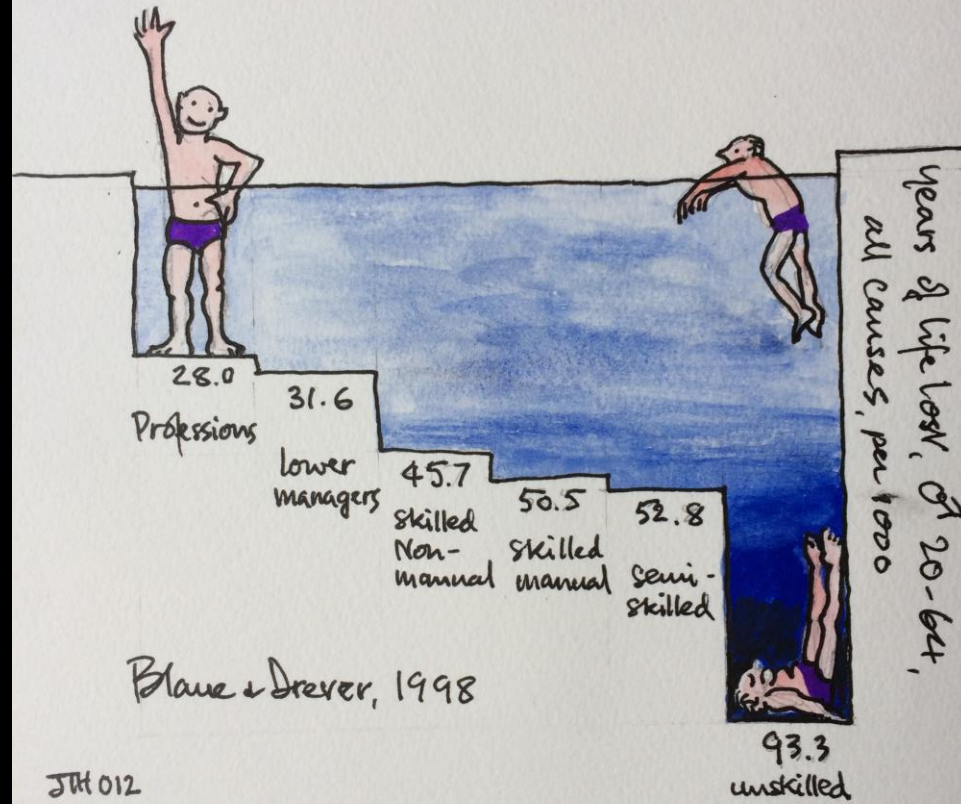 28.0
Professions
31.6
lower
managers
45.7
skilled
Non-
manual
50.5
skilled
manual
52.8
semi-
skilled
93.3
unskilled
years of life lost, ♂ 20-64,
all causes, per 1000
Blane & Drever, 1998
JTH 012